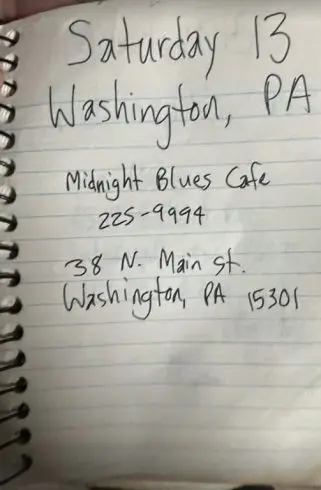 Saturday 13
Washington, PA
Midnight Blues Cafe
225-9994
38 N. Main St.
Washington, PA 15301